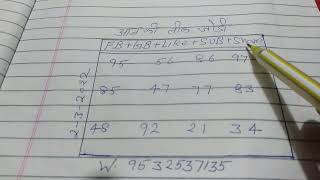 आज की लीक जोड़ी
FB+GB+Like+SUB+Share
95 56 86 97
85 47 77 83
48 92 21 34
2-3-2022
W. 9532537135